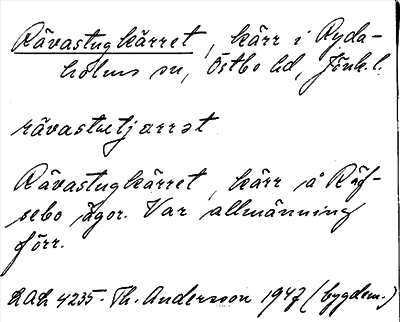 Rävastugkärret, kärr i Ryda-
holms sn, Östbo hd, Jönk. l.
rävastɯtjærət
Rävastugkärret, kärr å Räf-
sebo ägor. Var allmänning
förr.
LAL 4235. Th. Andersson 1947 (bygdem.)